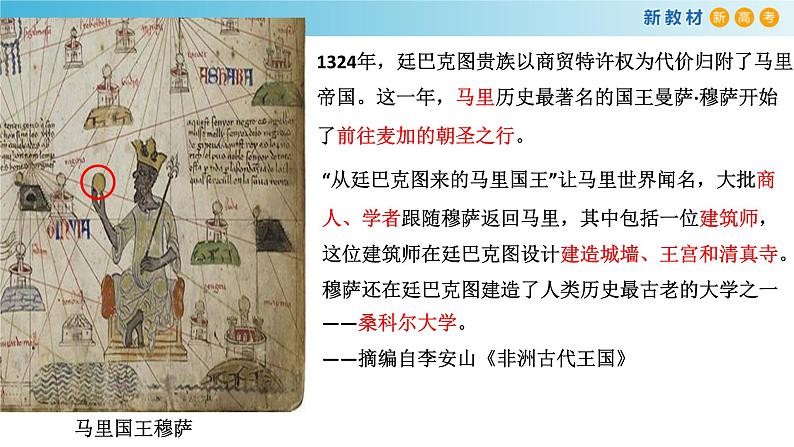 新教材 新 高 考
1324年，廷巴克图贵族以商贸特许权为代价归附了马里
帝国。这一年，马里历史最著名的国王曼萨·穆萨开始
了前往麦加的朝圣之行。
“从廷巴克图来的马里国王”让马里世界闻名，大批商
人、学者跟随穆萨返回马里，其中包括一位建筑师，
这位建筑师在廷巴克图设计建造城墙、王宫和清真寺。
穆萨还在廷巴克图建造了人类历史最古老的大学之一
——桑科尔大学。
——摘编自李安山《非洲古代王国》
马里国王穆萨